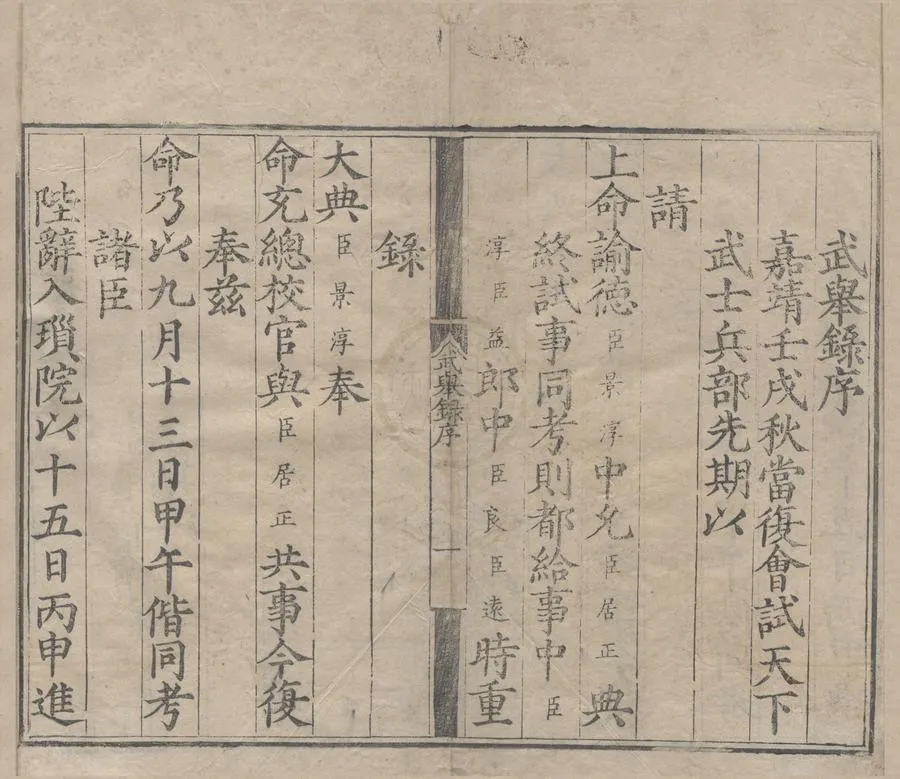 武舉錄序
嘉靖壬戌秋當復會試天下
武士兵部先期以
請
上命諭德臣景淳中允臣居正典
終試事同考則都給事中臣
淳臣益郎中臣良臣遠時重
武舉錄序
一
錄
大典臣景淳奉
命充總校官與臣居正共事今復
奉茲
命乃以九月十三日甲午偕同考
諸臣
陛辭入瑣院以十五日丙申進